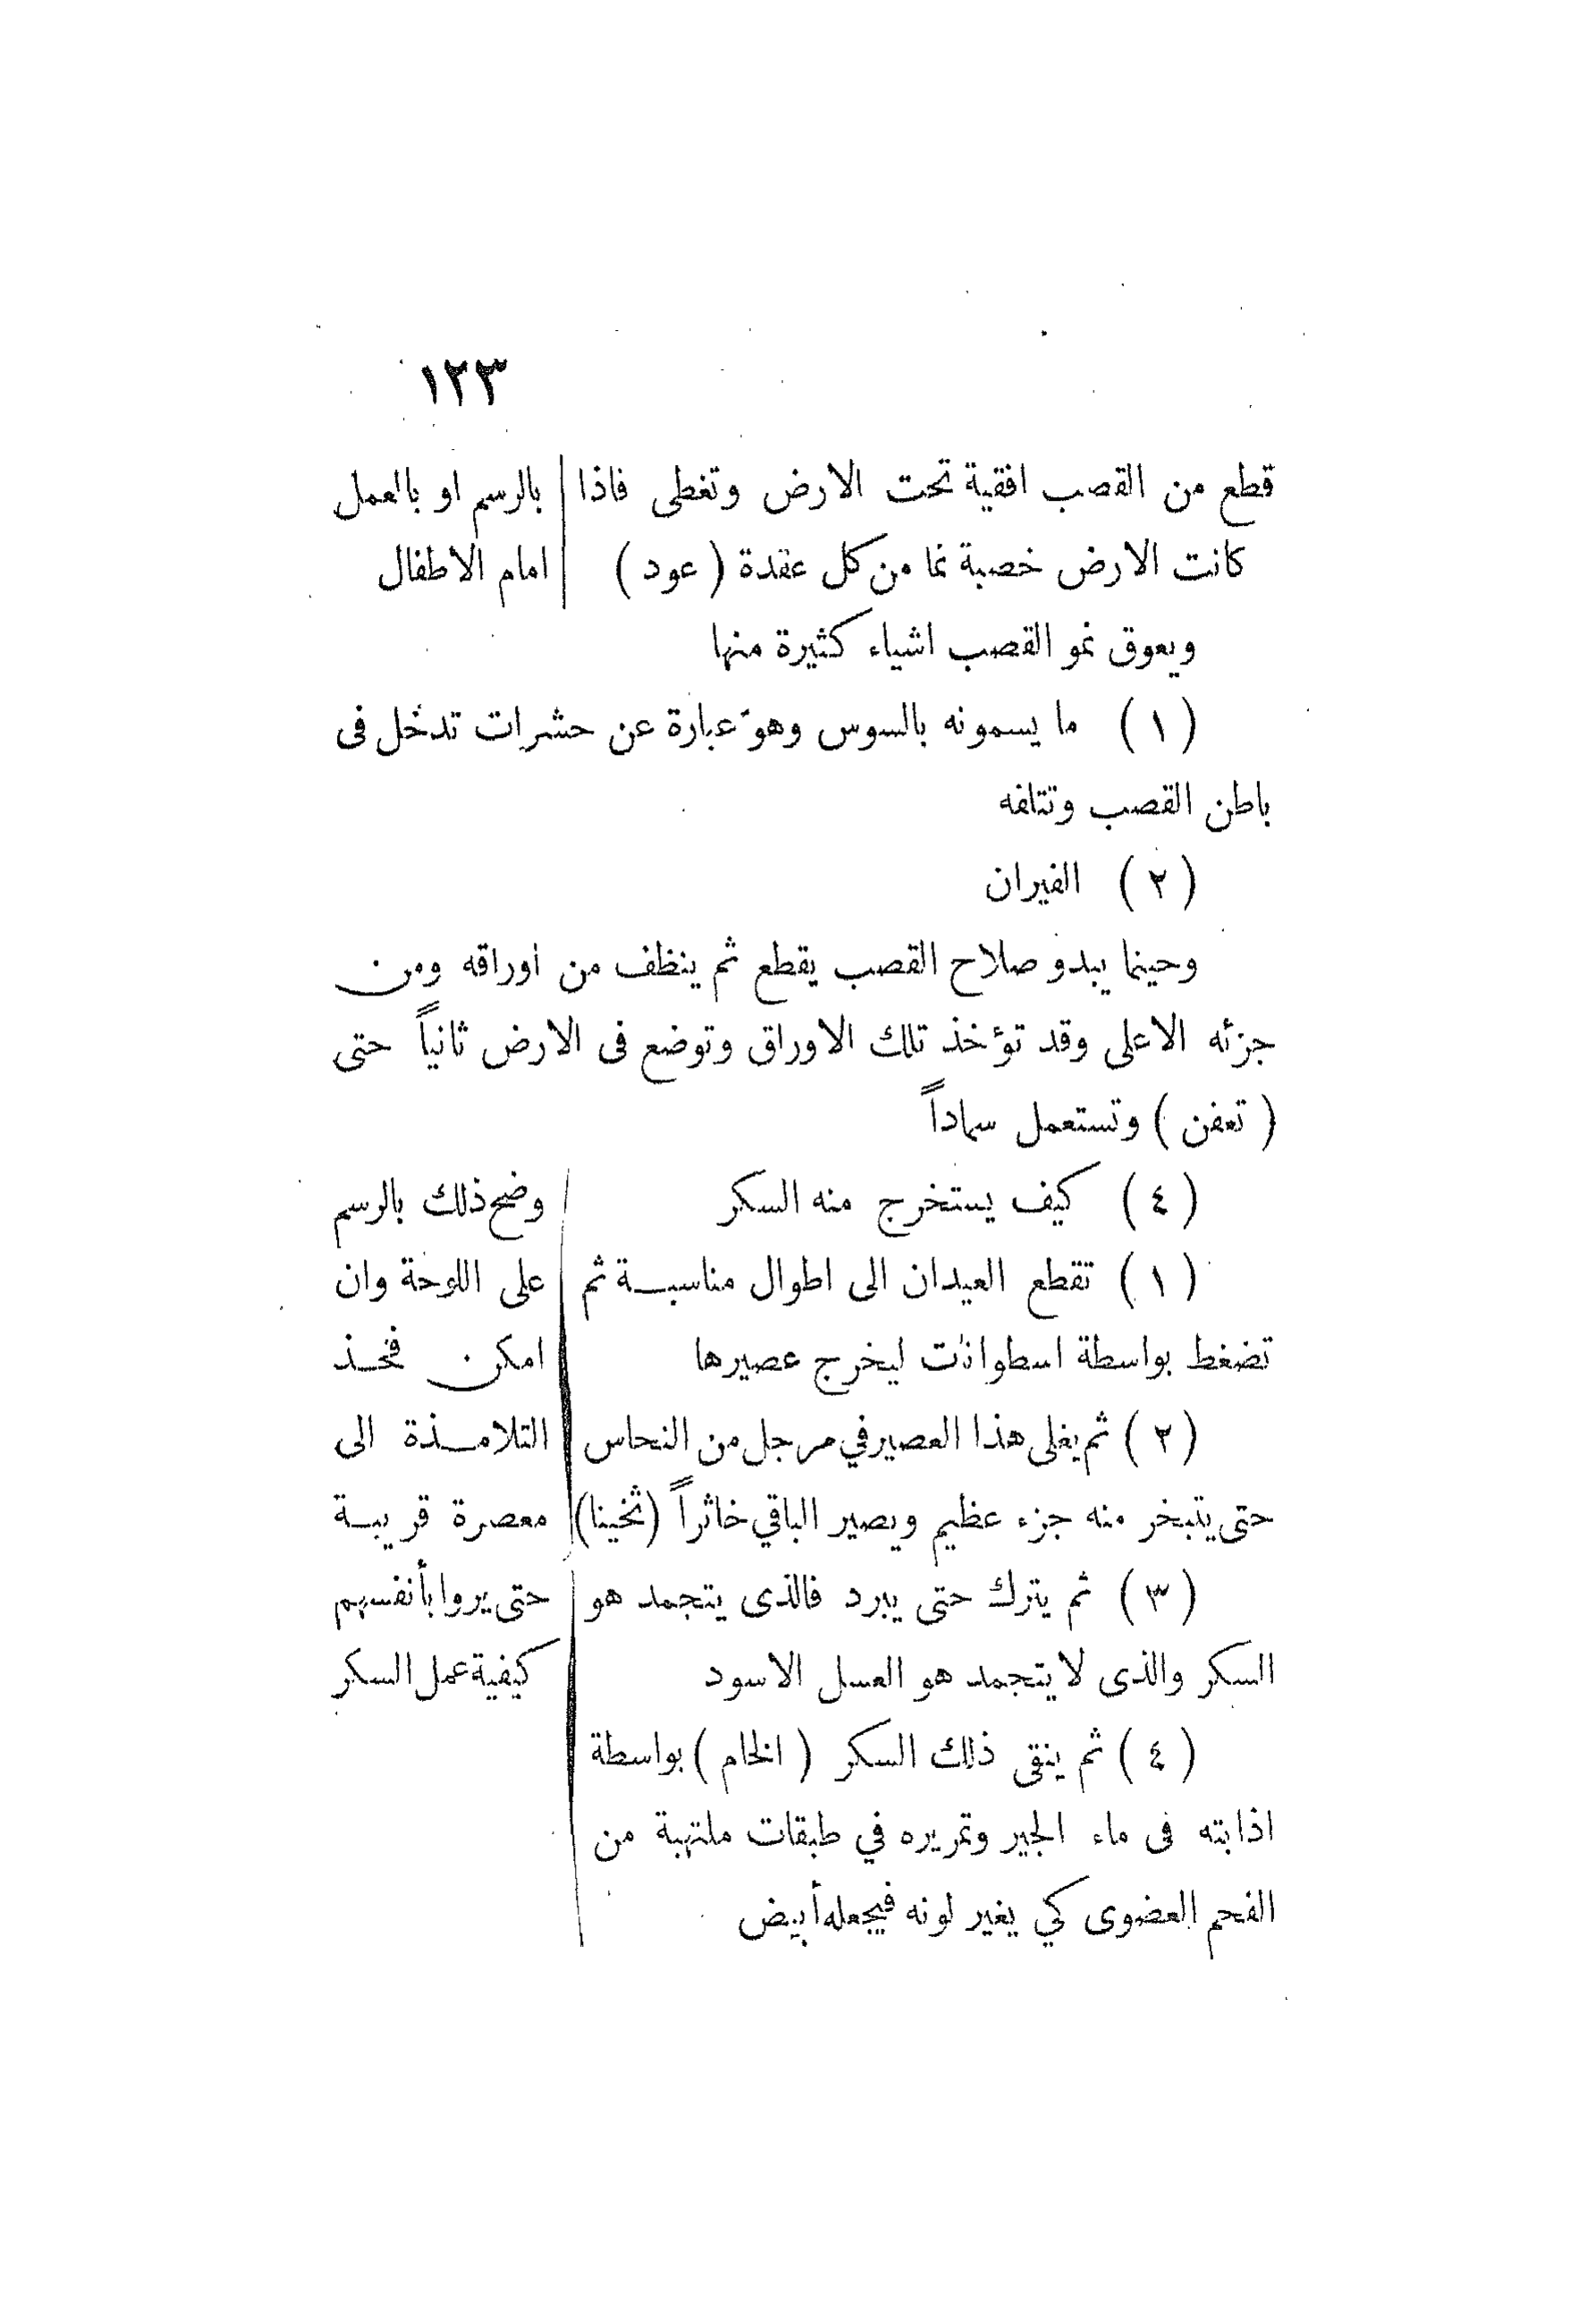 ١٢٣
قطع من القصب افقية تحت الارض وتغطى فاذا
كانت الارض خصبة نما من كل عقدة ( عود )
بالرسم او بالعمل
امام الاطفال
ويعوق نمو القصب اشياء كثيرة منها
( ١ ) ما يسمونه بالسوس وهو عبارة عن حشرات تدخل فى
باطن القصب وتتلفه
( ٢ ) الفيران
وحينما يبدو صلاح القصب يقطع ثم ينظف من اوراقه ومن
جزئه الاعلى وقد تؤخذ تلك الاوراق وتوضع فى الارض ثانياً حتى
( تعفن ) وتستعمل سماداً
( ٤ ) كيف يستخرج منه السكر
( ١ ) تقطع العيدان الى اطوال مناسبة ثم
تضغط بواسطة اسطوانات ليخرج عصيرها
( ٢ ) ثم يغلى هذا العصير في مرجل من النحاس
حتى يتبخر منه جزء عظيم ويصير الباقي خاثراً (ثخينا)
( ٣ ) ثم يترك حتى يبرد فالذى يتجمد هو
السكر والذى لا يتجمد هو العسل الاسود
( ٤ ) ثم ينقى ذلك السكر ( الخام ) بواسطة
اذابته فى ماء الجير وتمريره في طبقات ملتهبة من
الفحم العضوى كي يغير لونه فيجعله أبيض
وضح ذلك بالرسم
على اللوحة وان
امكن فخذ
التلامذة الى
معصرة قريبة
حتى يروا بأنفسهم
كيفية عمل السكر